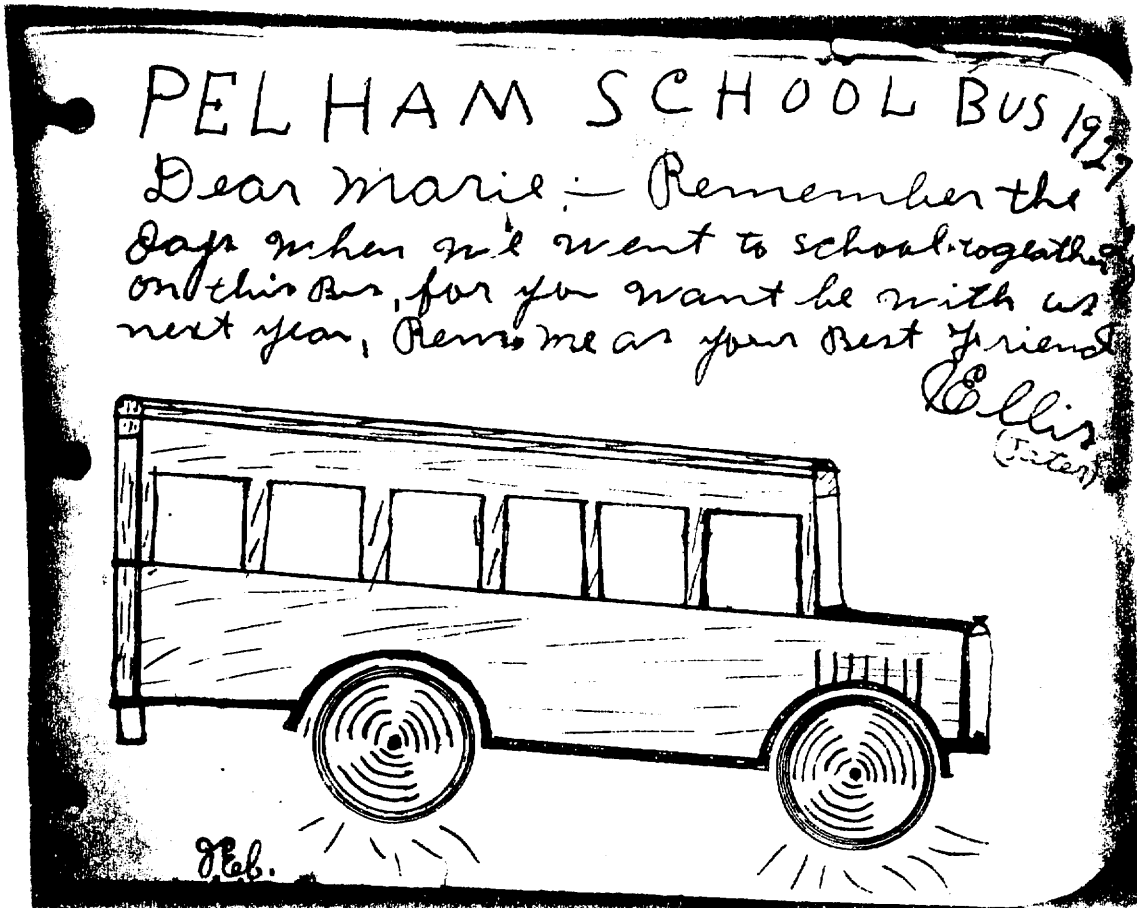 PELHAM SCHOOL BUS 1927
Dear Marie :— Remember the
Days when we went to school together
on this Bus, for you want be with us
next year, Rem. me as your Best Friend
Ellis